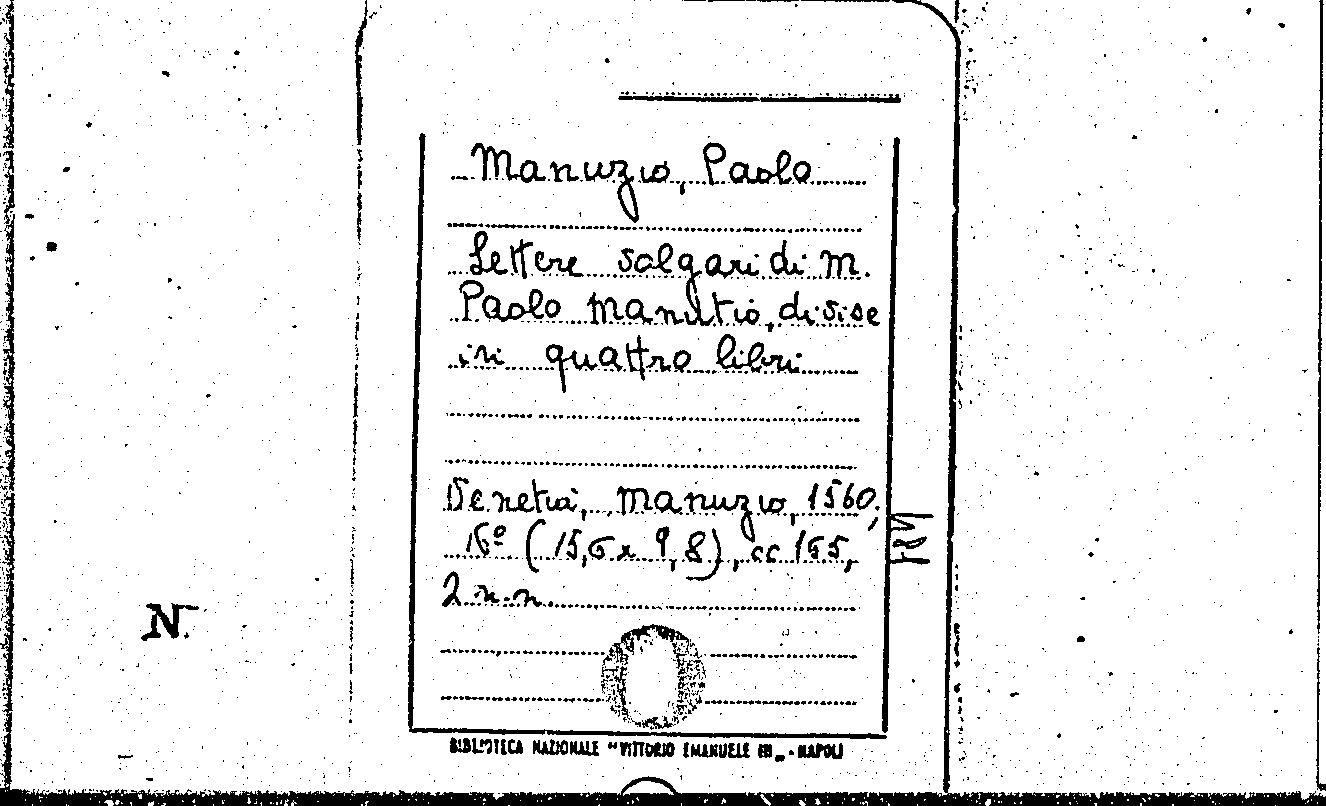 Manuzio, Paolo
Lettere volgari di M.
Paolo Manutio, divise
in quattro libri
Venetia, Manuzio, 1560,
16º (15,6 x 9,8), cc 155,
2 n.n.
N.
BIBLIOTECA NAZIONALE "VITTORIO EMANUELE III„ - NAPOLI